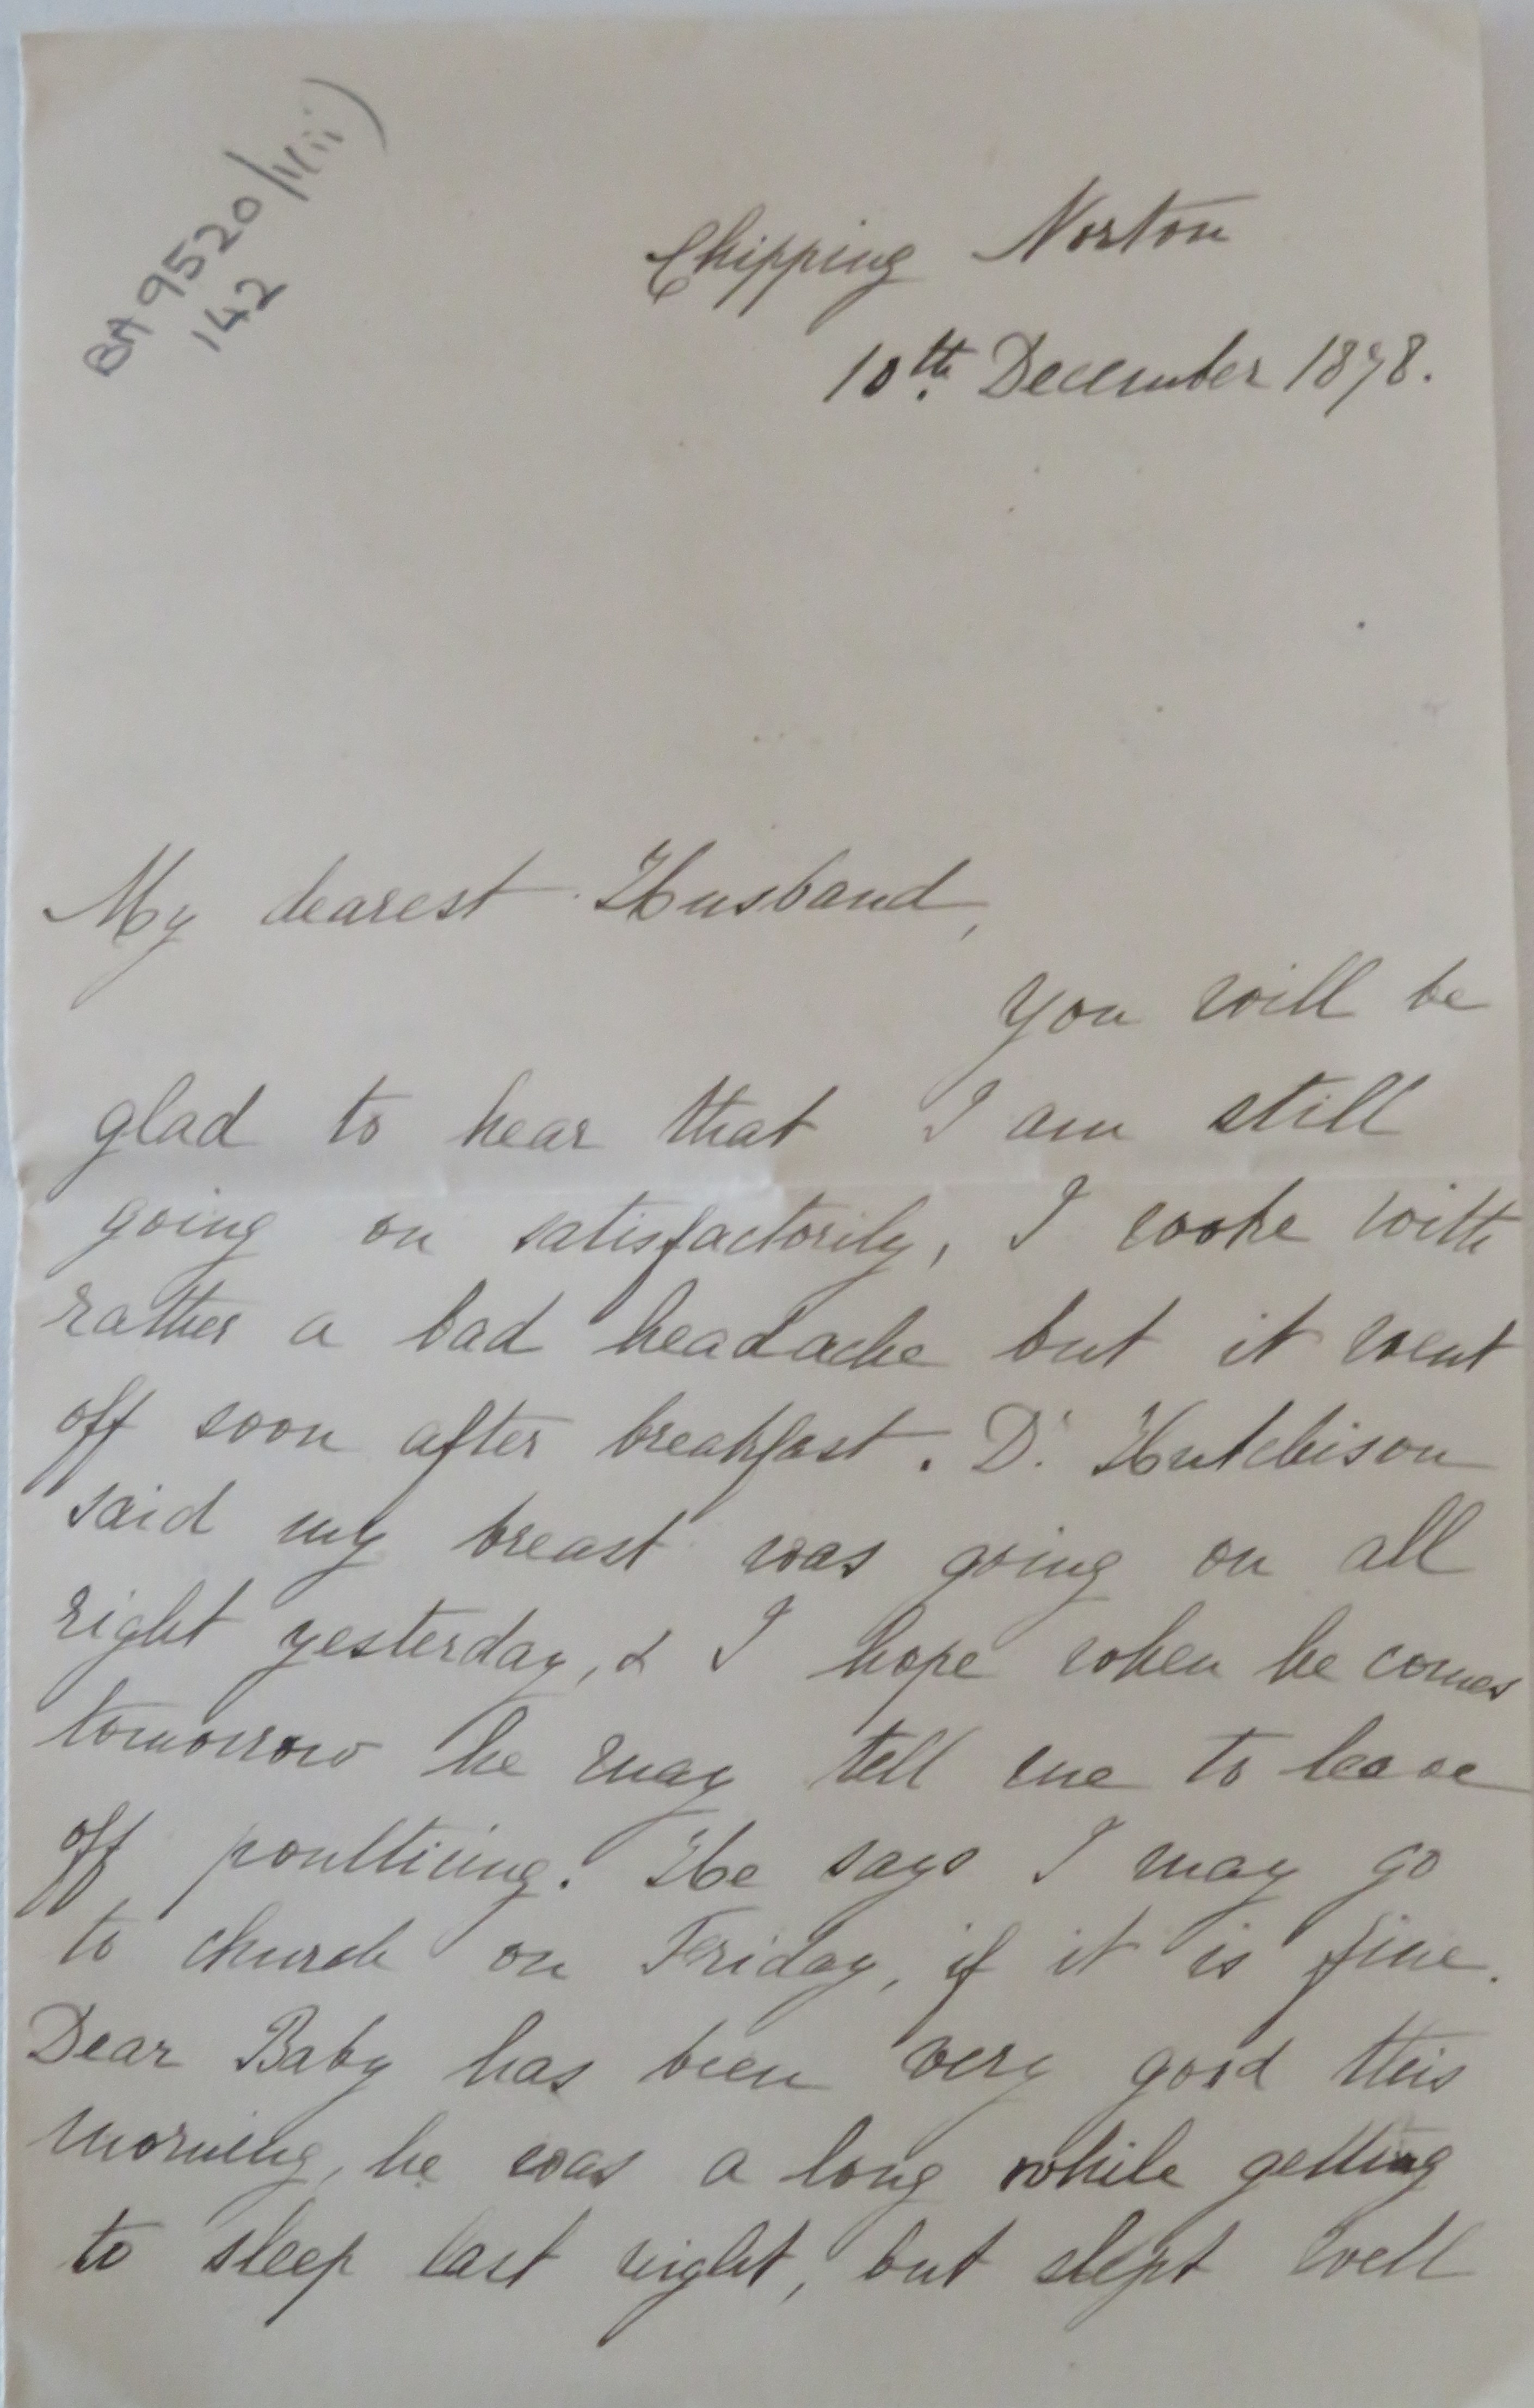 BA 9520/1(ii)
142
Chipping Norton
10th. December 1878.
My dearest Husband,
you will be
glad to hear that I am still
going on satisfactorily, I woke with
rather a bad headache but it went
off soon after breakfast. Dr. Hutchison
said my breast was going on all
right yesterday, & I hope when he comes
tomorrow he may tell me to leave
off poulticing. He says I may go
to church on Friday, if it is fine.
Dear Baby has been very good this
morning, he was a long while getting
to sleep last night, but slept well